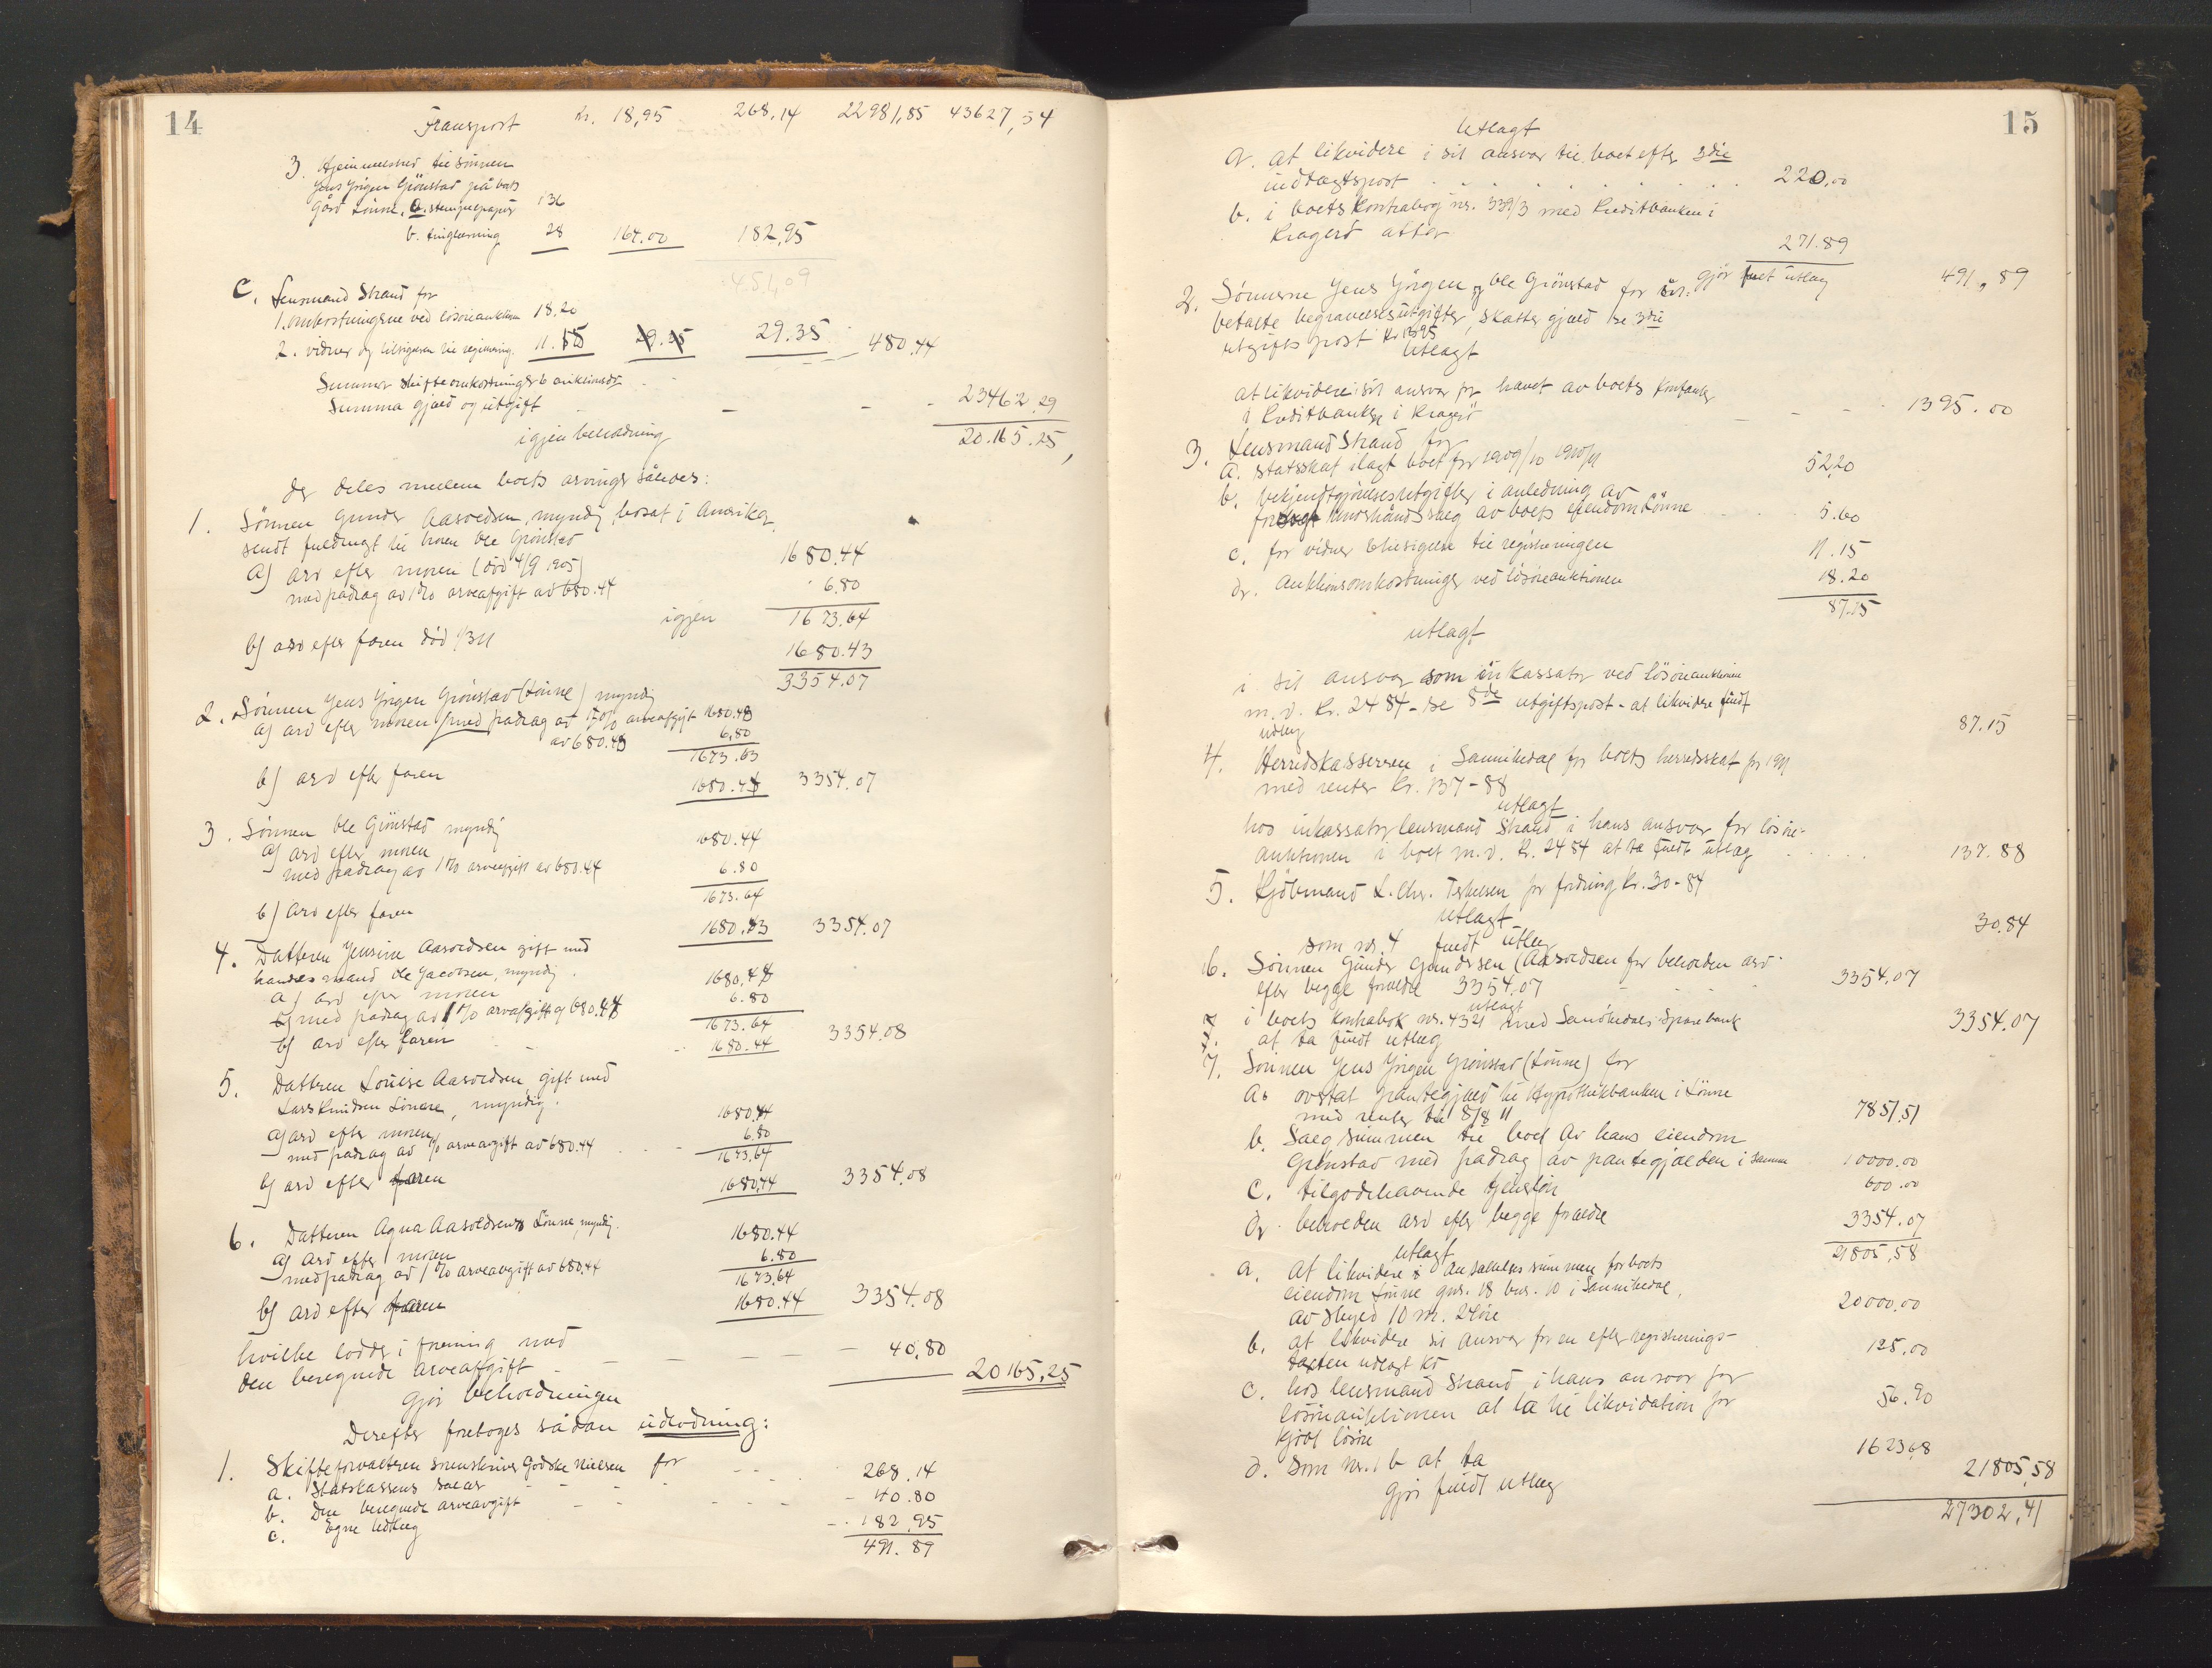 14
Transport kr. 18,95 268,14 22981,85 43627,54
3. Hjemmelsbrev til sönnen
Jens Jörgen Grönstad på boets
gård Lönne, a. stempelpapir 136
b. tinglæsning 28 164.00 182,95
451,09
C. Lensmand Strand for
1. omkostningerne ved lösöreauktion 18.20
2. vidner og tilsigelsen til registrering 11.15 29.35 29.35 480.44
Summa skifteomkostninger & auktionsdo
Summa gjæld og utgift - - - 23462.29
igjen beholdning 20.165.25,
der deles mellem boets arvinger således:
1. Sönnen Gunder Aasoldsen, myndig, bosat i Amerika,
sendt fuldmagt til broren Ole Grönstad
a) arv efter moren (död 4/9 1905) 1680.44
med fradrag av 1% arveafgift av 680.44 6.80
igjen 1673.64
b) arv efter faren död 1/3 11 1680.43
3354.07
2. Sönnen Jens Jörgen Grönstad (Lönne) myndig
a) arv efter moren med fradrag av 1% arveafgift 1680.43
av 680.43 6,80
1673.63
b) arv efter faren 1680.44 3354.07
3. Sönnen Ole Grönstad myndig
a) arv efter moren 1680.44
med fradrag av 1% arveafgift av 680.44 6.80
1673.64
b) Arv efter faren 1680.43 3354.07
4. Datteren Jensine Aasoldsen gift med
handelsmand Ole Jacobsen, myndig.
a) arv efter moren 1680.44
med fradrag av 1% arveafgift af 680.44 6.80
1673.64
b) arv efter faren - 1680.44 3354.08
5. Datteren Louise Aasoldsen, gift med
Lars Knudsen Lönne, myndig.
a) arv efter moren 1680.44
med fradrag av 1% arveavgift av 680.44 6.80
1673.64
b) arv efter faren 1680.44 3354.08
6. Datteren Agna Aasoldsen Lönne, myndig. 1680.44
a) Arv efter moren 6.80
med fradrag av 1% arveavgift av 680.44 1673.64
b) arv efter faren 1680.44 3354.08
hvilke lodder i forening med
den beregnede arveafgift - - - - - 40.80
gjör beholdningen 20165,25
Derefter foretoges sådan udlodning:
1. Skifteforvalteren sorenskriver Godske Nielsen for
a. Statskassens salær 268.14
b. Den beregnede arveavgift 40.80
c. Egne Utlæg 182.95
491.89
15
Utlagt
a. at likvidere i sit ansvar til boet efter 3die
indtægtspost 220,00
b. i boets kontrabog nr. 339/3 med Kreditbanken i
Kragerö atter 271.89
gjör fuldt utlæg 491,89
2. Sönnerne Jens Jörgen og Ole Grönstad for
betalte begravelsesutgifter, skatter gjæld se 3die
utgifts post kr 1395
Utlagt
at likvidere i sit ansvar for hævet av boets kontrabog
i Kreditbanken i Kragerö - - 1395.00
3. Lensmand Strand for
a. statsskat ilagt boet for 1909/10 1910/11 52,20
b. bekjendtgjörelsesutgifter i anledning av
forsögt underhåndssalg av boets eiendom Lönne 5.60
c. for vidner & tilsigelse til registreringen 11.15
d. Auktionsomkostninger ved lösöreauktionen 18.20
87.15
utlagt
i sit ansvar som inkassator ved lösöreauktionen
m.v. kr. 2484 - se 8de utgiftspost - at likvidere fuldt
udlæg 87.15
4. Herredskassereren i Sannikedal for boets herredsskat for 1911
med renter kr. 137-88
utlagt
hos inkassator lensmand Strand i hans ansvar for lösöre-
auktionen i boet m.v. kr. 2484 at ta fuldt utlæg 137.88
5. Kjöbmand L. Chr. Terkelsen for fordring kr. 30-84
utlagt
som nr. 4 fuldt utlæg 30.84
6. Sönnen Gunder Gundersen (Aasoldsen for beholden arv
efter begge forældre 3354.07 - - 3354.07
utlagt
i boets kontrabok nr. 4321 med Sanökedals Sparebank
at ta fuldt utlæg 3354.07
7. Sönnen Jens Jörgen Grönstad (Lönne) for
a. overtat pantegjæld til Hypothekbanken i Lönne
med renter til 8/8 11 7851,51
b. Salgssummen til boet av hans eiendom
Grönstad med fradrag av pantegjælden i samme 10000.00
c. tilgodehavende tjenstlön 600.00
d. beholden arv efter begge forældre 3354.07
21805,58
utlagt
a. at likvidere i ansættelses summen for boets
eiendom Lönne gnr. 18 bnr. 10 i Sannikedal,
av skyld 10 m. 24 öre 20000,00
b. at likvidere sit ansvar for en efter registrerings-
taxten udlagt ko 125,00
c. hos lensmand Strand i hans ansvar for
lösöreauktionen at ta til likvidation for
kjöbt lösöre 56.90
d. som nr. 1 b at ta 1623,68
gjör fuldt utlæg 21805,58
27302,41